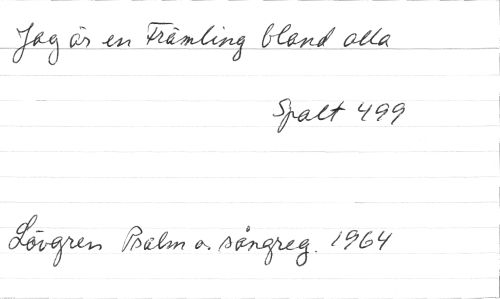 Jag är en Främling bland alla
Spalt 499
Lövgren Psalm o. sångreg. 1964